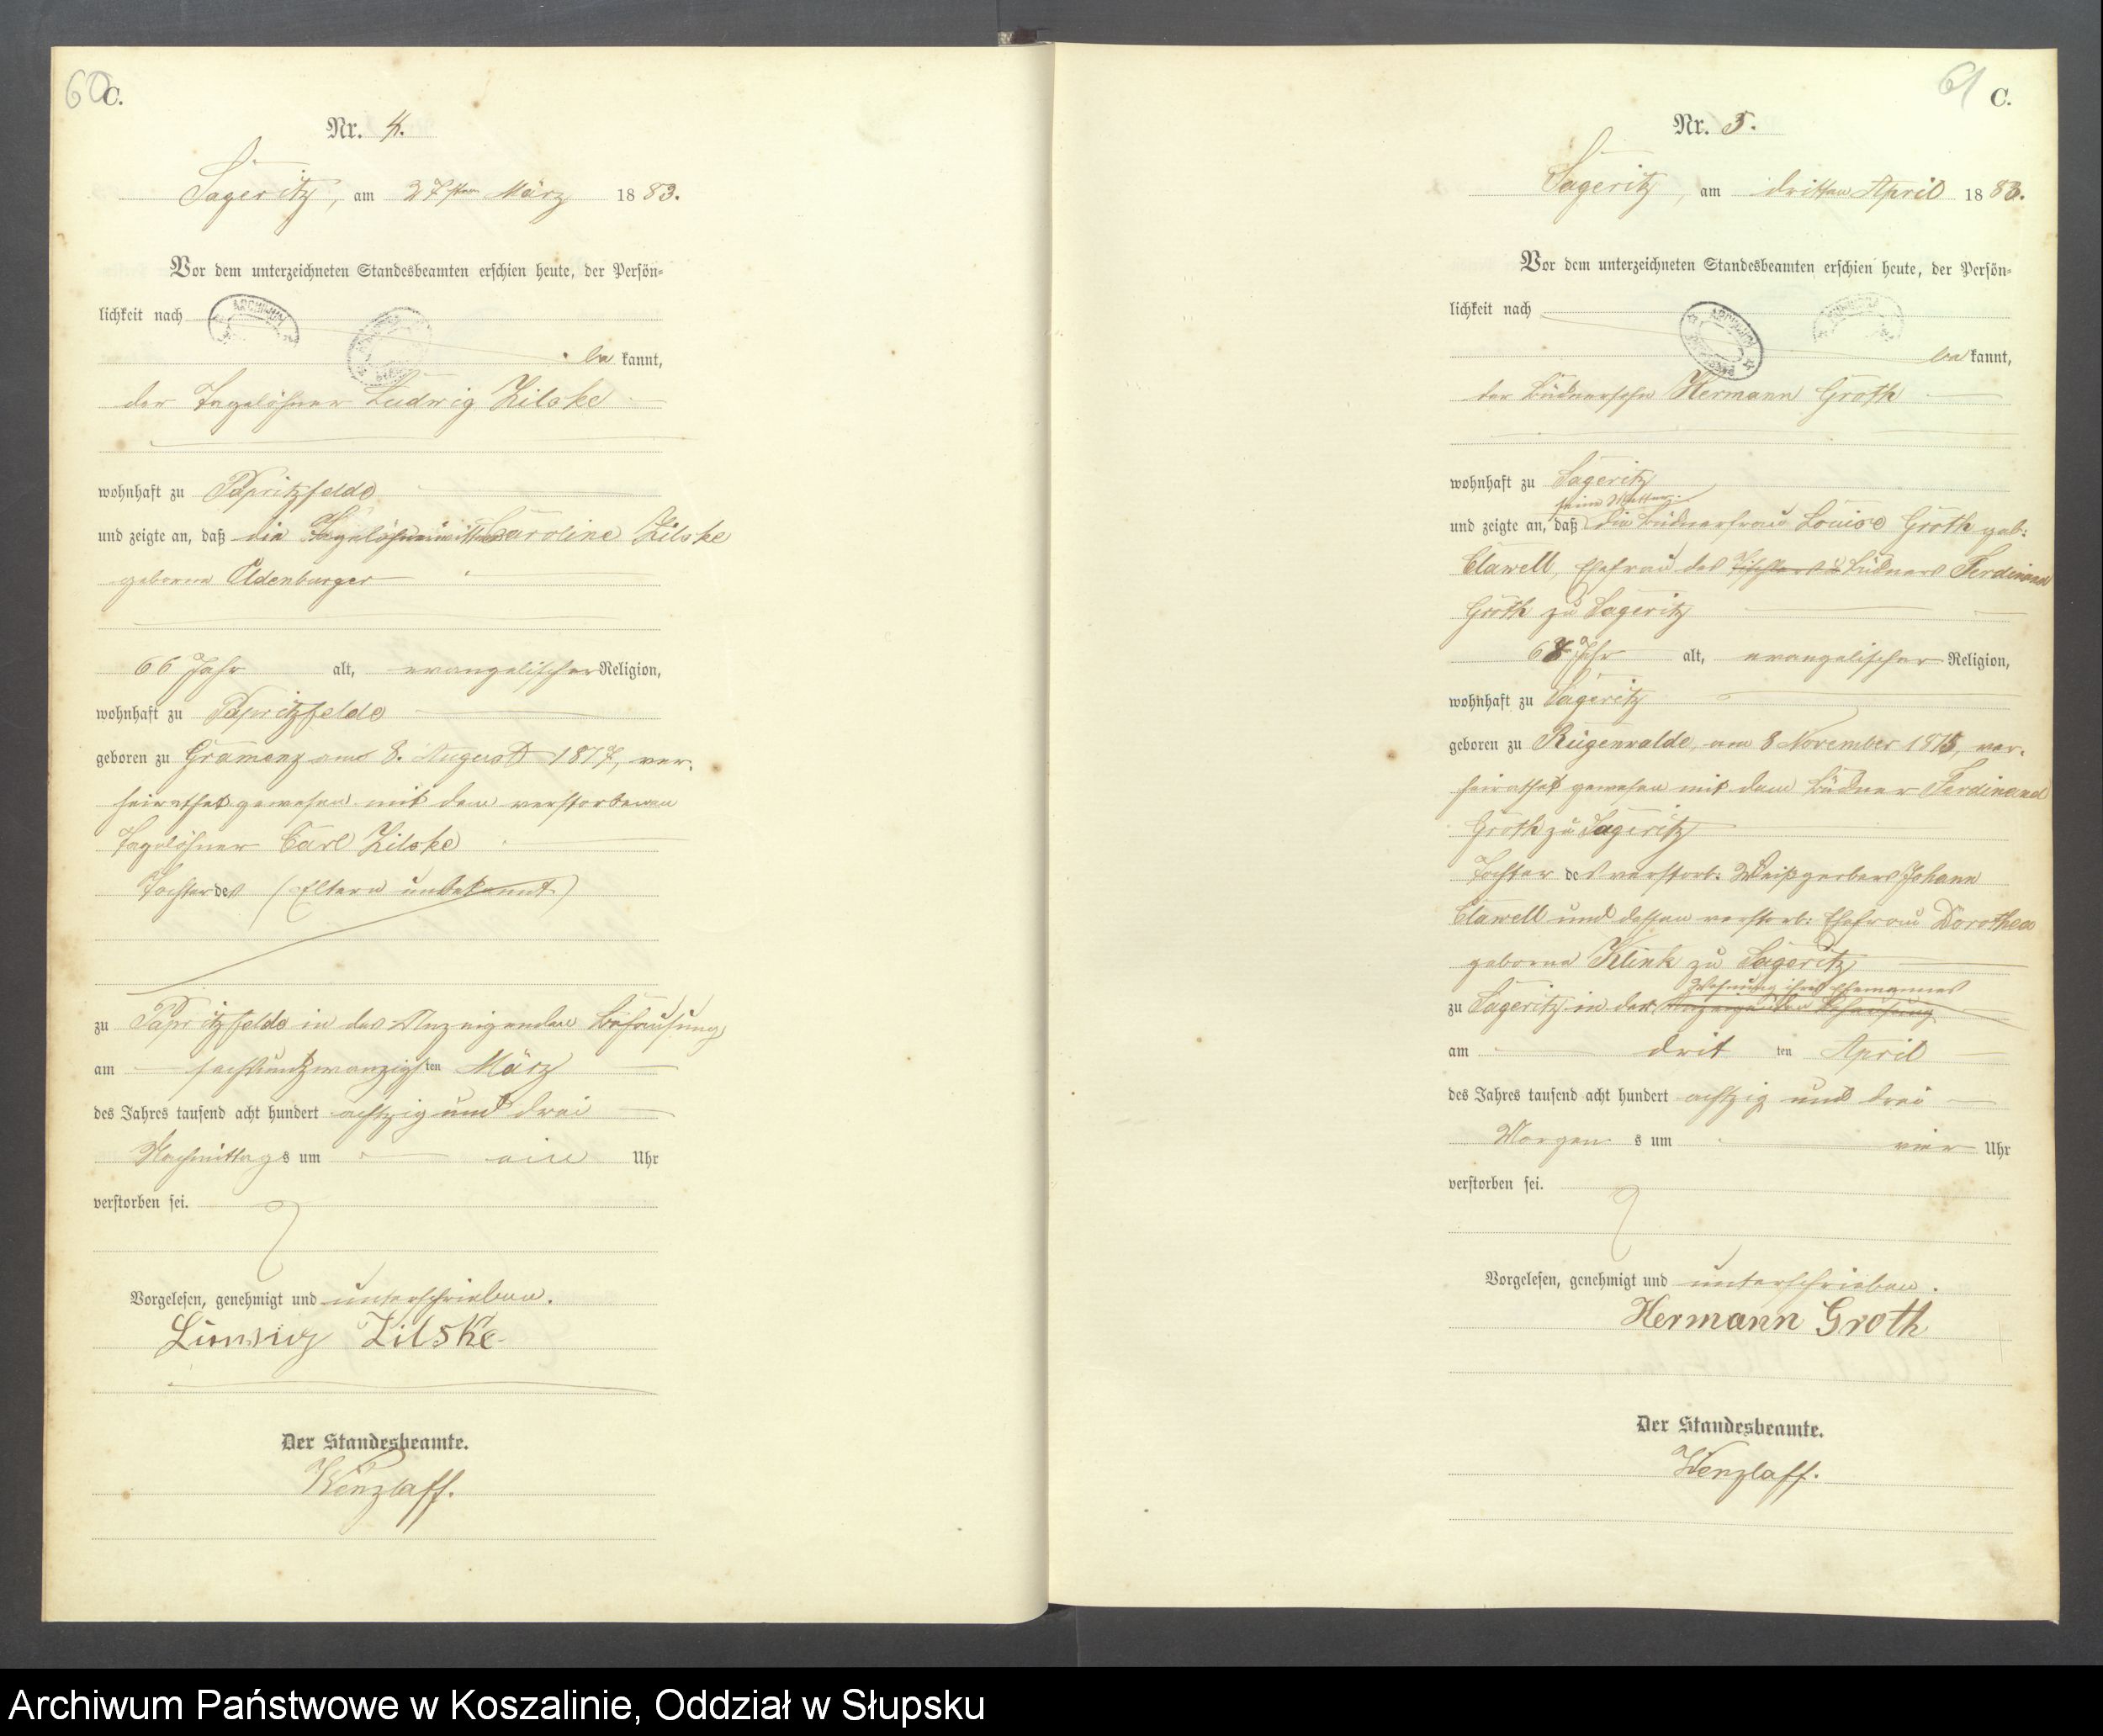 60
C.
Nr. 4.
Sageritz, am 27sten März 1883.
Vor dem unterzeichneten Standesbeamten erschien heute, der Persön-
lichkeit nach
ARCHIWUM
be kannt,
der Tagelöhner Ludwig Zilske
wohnhaft zu Papritzfelde
und zeigte an, daß die Tagelöhnerwittwe Caroline Zilske
geborene Oldenburger
66 Jahr alt, evangelischer Religion,
wohnhaft zu Papritzfelde
geboren zu Gramenz am 8. August 1817, ver-
heirathet gewesen mit dem verstorbenen
Tagelöhner Carl Zilske
Tochter des (Eltern unbekannt)
zu Papritzfelde in des Anzeigenden Behausung
am sechsundzwanzigsten März
des Jahres tausend acht hundert achtzig und drei
Nachmittags um ein Uhr
verstorben sei.
Vorgelesen, genehmigt und unterschrieben.
Ludwig Zilske
Der Standesbeamte.
Wenzlaff.
61
C.
Nr. 5.
Sageritz, am dritten April 1883.
Vor dem unterzeichneten Standesbeamten erschien heute, der Persön-
lichkeit nach
ARCHIWUM
be kannt,
der Büdnersohn Hermann Groth
wohnhaft zu Sageritz
seine Mutter
und zeigte an, daß die Büdnerfrau Louise Groth geb:
Clawell, Ehefrau des Büdners Ferdinand
Groth zu Sageritz
68 Jahr alt, evangelischer Religion,
wohnhaft zu Sageritz
geboren zu Rügenwalde, am 8 November 1815, ver-
heirathet gewesen mit dem Büdner Ferdinand
Groth zu Sageritz
Tochter des verstorb: Weißgerbers Johann
Clawell und dessen verstorb: Ehefrau Dorothea
geborene Klink zu Sageritz
Wohnung ihres Ehemannes
zu Sageritz in der Anzeigenden Behausung
am dritten April
des Jahres tausend acht hundert achtzig und drei
Morgens um vier Uhr
verstorben sei.
Vorgelesen, genehmigt und unterschrieben.
Hermann Groth
Der Standesbeamte.
Wenzlaff.
Archiwum Państwowe w Koszalinie, Oddział w Słupsku